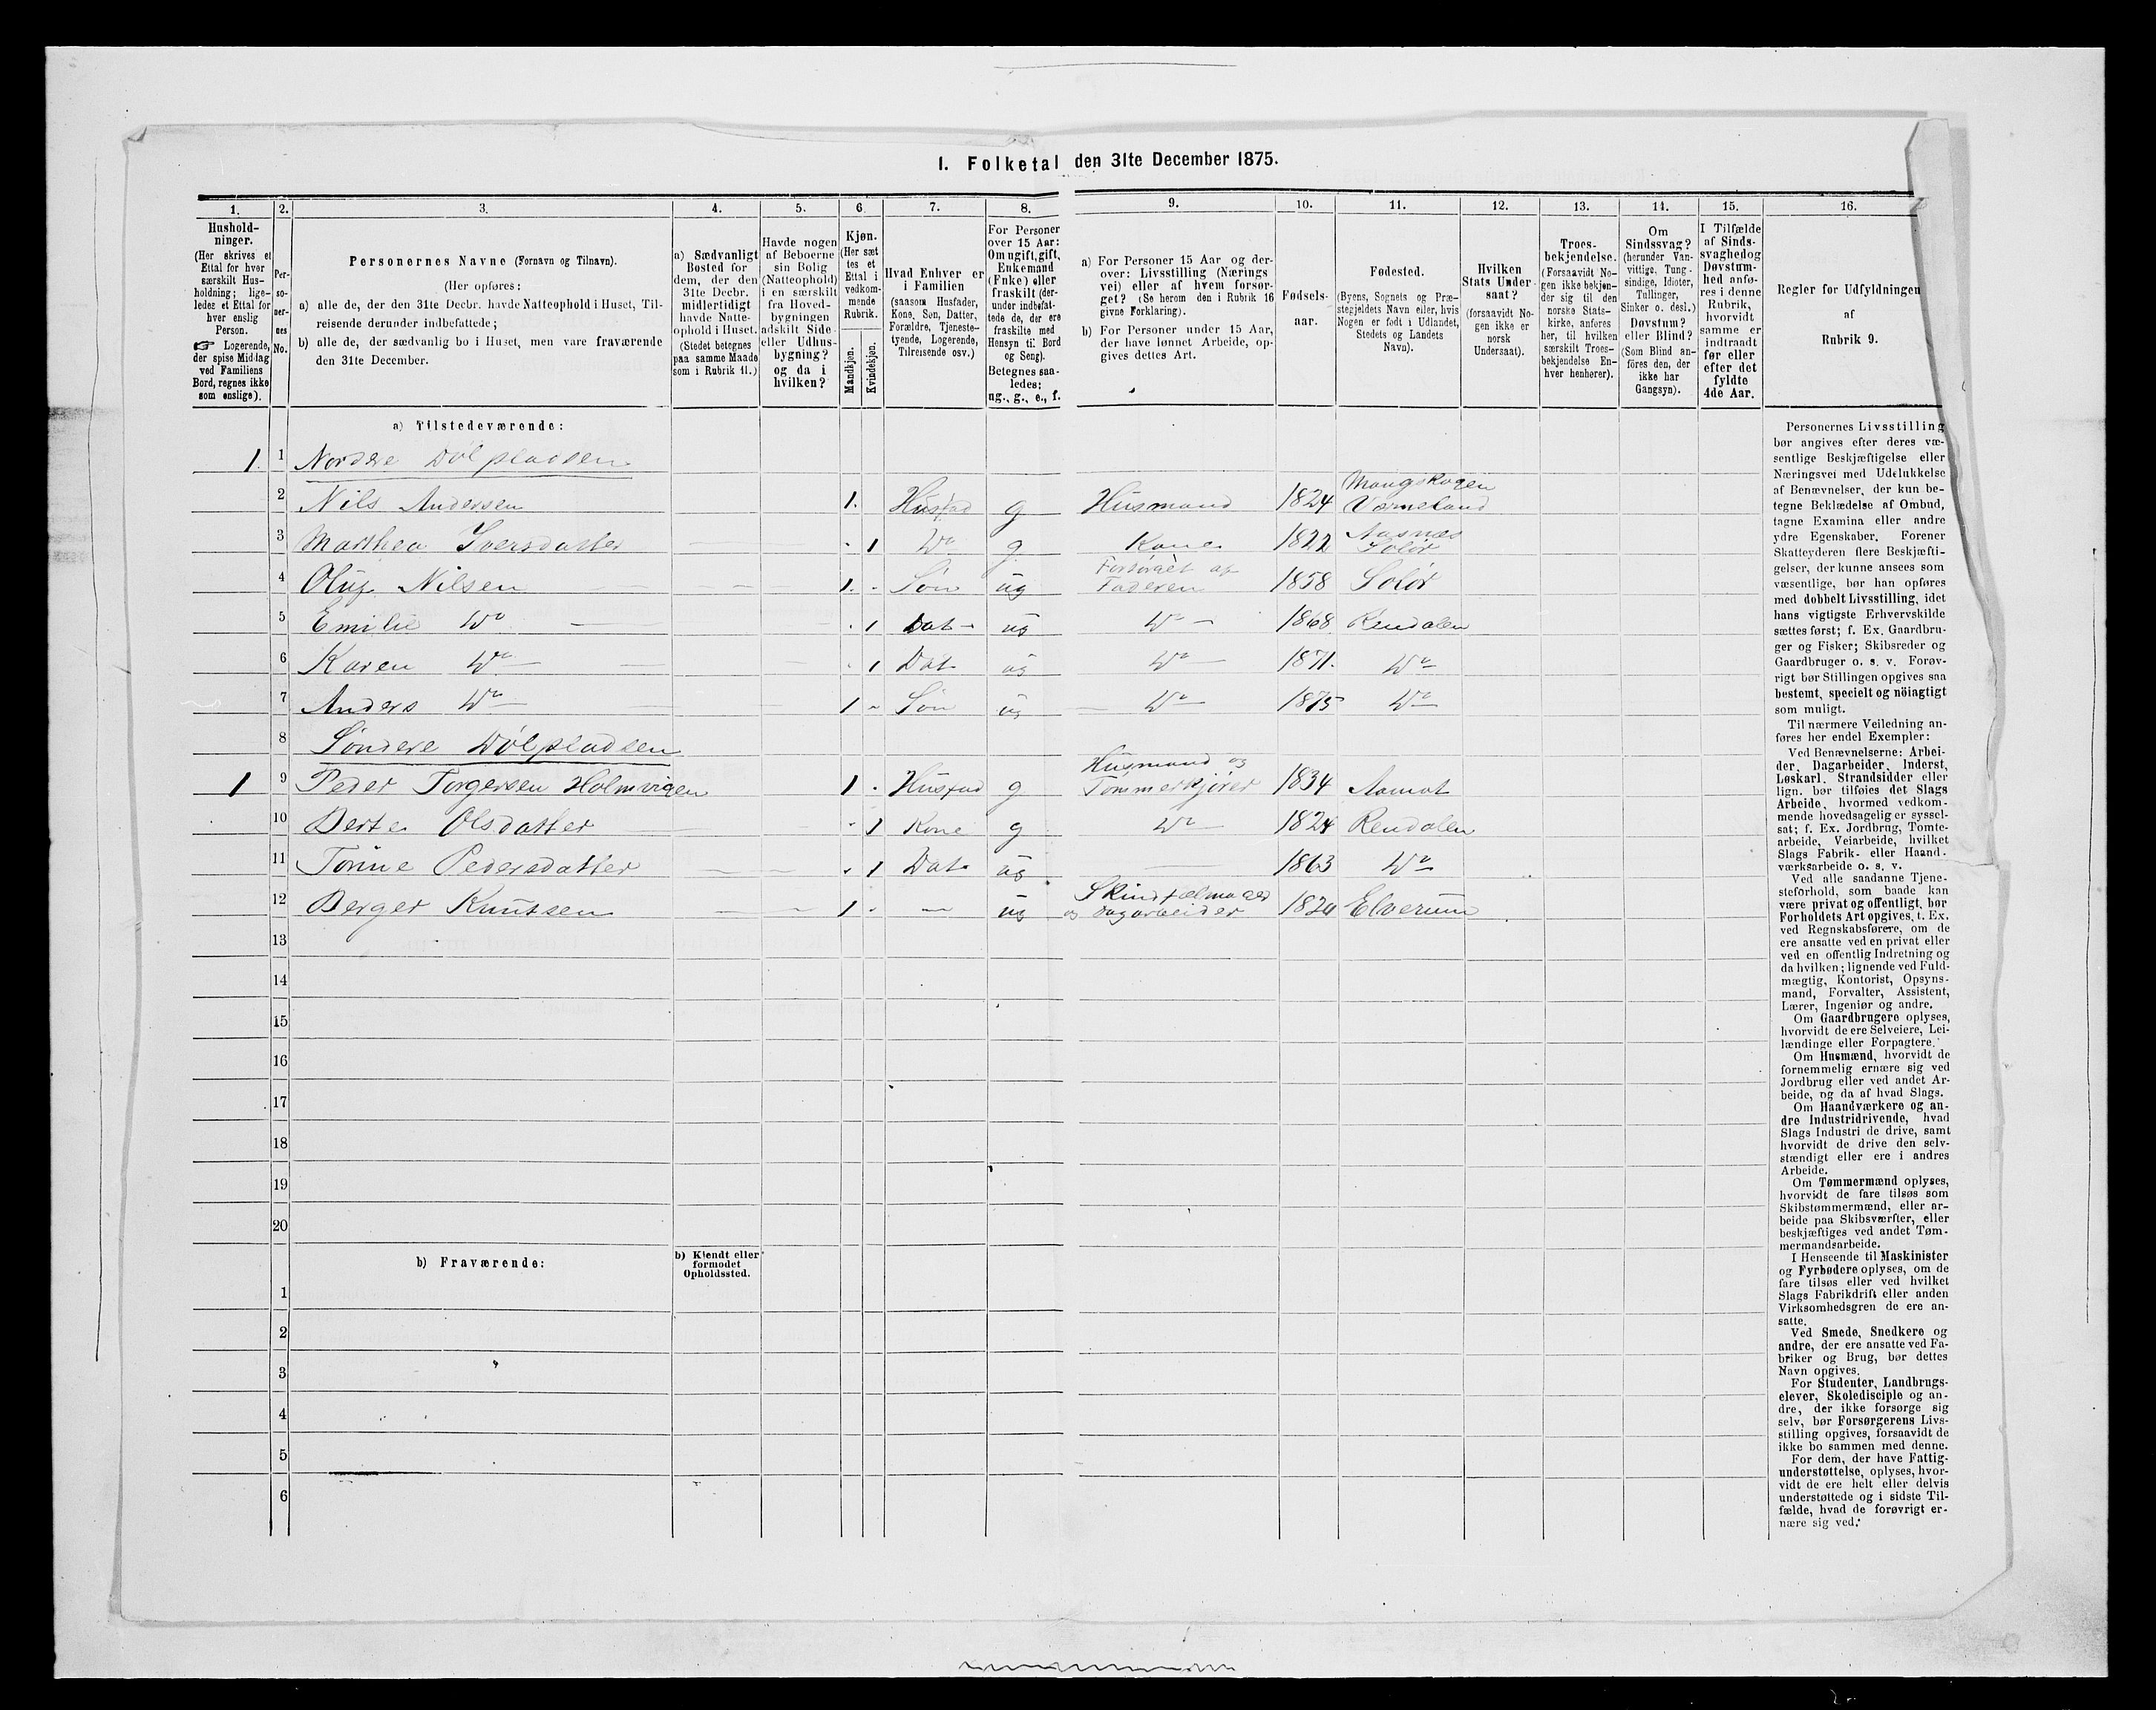 I. Folketal den 31te December 1875.
1.
2.
3.
4.
5.
6
7.
8.
9.
10.
11.
12.
13.
14.
15.
16.
Hushold-
ninger.
(Her skrives et
Ettal for hver
særskilt Hus-
holdning; lige-
ledes et Ettal for
hver enslig
Person.
☞ Logerende,
der spise Middag
ved Familiens
Bord, regnes ikke
som enslige).
Per-
so-
ner-
nes
No.
Personernes Navne (Fornavn og Tilnavn).
(Her opføres:
a) alle de, der den 31te Decbr. havde Natteophold i Huset, Til-
reisende derunder indbefattede;
b) alle de, der sædvanlig bo i Huset, men vare fraværende
den 31te December.
a) Sædvanligt
Bosted for
dem, der den
31te Decbr.
midlertidigt
havde Natte-
ophold i Huset.
(Stedet betegnes
paa samme Maade
som i Rubrik 11.)
Havde nogen
af Beboerne
sin Bolig
(Natteophold)
i en særskilt
fra Hoved-
bygningen
adskilt Side-
eller Udhus-
bygning?
og da i
hvilken?
Kjøn.
(Her sæt
tes et
Ettal i
vedkom-
mende
Rubrik.
Mandkjøn.
Kvindekjøn.
Hvad Enhver er
i Familien
(saasom Husfader,
Kone, Søn, Datter,
Forældre, Tjeneste-
tyende, Logerende,
Tilreisende osv.)
For Personer
over 15 Aar:
Om ugift, gift,
Enkemand
(Enke) eller
fraskilt (der-
under indbefat-
tede de, der ere
fraskilte med
Hensyn til Bord
og Seng).
Betegnes saa-
ledes:
ug., g., e., f.
a) For Personer 15 Aar og der-
over: Livsstilling (Nærings
vei) eller af hvem forsør-
get? (Se herom den i Rubrik 16
givne Forklaring).
b) For Personer under 15 Aar,
der have lønnet Arbeide, op-
gives dettes Art.
Fødsels-
aar.
Fødested.
(Byens, Sognets og Præ-
stegjeldets Navn eller, hvis
Nogen er født i Udlandet,
Stedets og Landets
Navn).
Hvilken
Stats Under-
saat?
(forsaavidt No-
gen ikke er
norsk
Undersaat).
Troes-
bekjendelse.
(Forsaavidt No-
gen ikke bekjen-
der sig til den
norske Stats-
kirke, anføres
her, til hvilken
særskilt Troes-
bekjendelse En-
hver henhører).
Om
Sindssvag?
(herunder Van-
vittige, Tung-
sindige, Idioter,
Tullinger,
Sinker o. desl.)
Døvstum?
eller Blind?
(Som Blind an-
föres den, der
ikke har
Gangsyn).
I Tilfælde
af Sinds-
svaghed og
Døvstum-
hed anfø-
res i denne
Rubrik,
hvorvidt
samme er
indtraadt
før eller
efter det
fyldte
4de Aar.
Regler for Udfyldningen
af
Rubrik 9.
a) Tilstedeværende:
1. 1 Nordre Dölpladsen
2 Nils Andersen 1. Husfad g Husmand 1824 Mangskogen Värmeland
3 Marthea Iversdatter 1 Do g. Kone 1822 Aasnæs Solör
4 Oluf Nilsen 1. Sön ug Forsörget af Faderen 1858 Solör
5 Emilie Do 1 Dat ug Do 1868 Rendalen
6 Karen Do 1 Dat ug Do 1871. Do
7 Anders Do 1 Sön ug Do 1875 Do
8 Söndere Dölpladsen
1 9 Peder Torgersen Holmvigen 1 Husfad g Husmand og Tömmerkjörer 1834 Aamot
10 Berte Olsdatter 1 Kone g Do 1824 Rendalen
11 Torine Pedersdatter 1 Dat ug 1863 Do
12 Berger Knutsen 1 ug Skindfælmager og Dagarbeider 1820 Elverum
13
14
15
16
17
18
19
20
b) Fraværende:
b) Kjendt eller
formodet
Opholdssted.
1
2
3
4
5
6
Personernes Livsstilling
bør angives efter deres væ-
sentlige Beskjæftigelse eller
Næringsvei med Udelukkelse
af Benævnelser, der kun be-
tegne Beklædelse af Ombud,
tagne Examina eller andre
ydre Egenskaber. Forener
Skatteyderen flere Beskjæfti-
gelser, der kunne ansees som
væsentlige, bør han opføres
med dobbelt Livsstilling, idet
hans vigtigste Erhvervskilde
sættes først; f. Ex. Gaardbru-
ger og Fisker; Skibsreder og
Gaardbruger o. s. v. Forøv-
rigt bør Stillingen opgives saa
bestemt, specielt og nöiagtigt
som muligt.
Til nærmere Veiledning an-
føres her endel Exempler:
Ved Benævnelserne: Arbei-
der, Dagarbeider, Inderst,
Løskarl, Strandsidder eller
lign. bør tilføies det Slags
Arbeide, hvormed vedkom-
mende hovedsagelig er syssel-
sat; f. Ex. Jordbrug, Tomte-
arbeide, Veiarbeide, hvilket
Slags Fabrik- eller Haand-
værksarbeide o. s. v.
Ved alle saadanne Tjene-
steforhold, som baade kan
være privat og offentligt, bør
Forholdets Art opgives, t. Ex.
ved Regnskabsførere, om de
ere ansatte ved en privat eller
ved en offentlig Indretning og
da hvilken; lignende ved Fuld-
mægtig, Kontorist, Opsyns-
mand, Forvalter, Assistent,
Lærer, Ingeniør og andre.
Om Gaardbrugere oplyses,
hvorvidt de ere Selveiere, Lei-
lændinge eller Forpagtere.
Om Husmænd, hvorvidt de
fornemmelig ernære sig ved
Jordbrug eller ved andet Ar-
beide, og da af hvad Slags.
Om Haandværkere og an-
dre Industridrivende, hvad
Slags Industri de drive, samt
hvorvidt de drive den selv-
stændigt eller ere i andres
Arbeide.
Om Tømmermænd oplyses,
hvorvidt de fare tilsøs som
Skibstømmermænd, eller ar-
beide paa Skibsværfter, eller
beskjæftiges ved andet Tøm-
mermandsarbeide.
I Henseende til Maskinister
og Fyrbødere oplyses, om de
fare tilsøs eller ved hvilket
Slags Fabrikdrift eller anden
Virksomhedsgren de ere an-
satte.
Ved Smede, Snedkere og
andre, der ere ansatte ved Fa-
briker og Brug, bør dettes
Navn opgives.
For Studenter, Landbrugs-
elever, Skoledisciple og an-
dre, der ikke forsørge sig
selv, bør Forsørgerens Livs-
stilling opgives, forsaavidt de
ikke bo sammen med denne.
For dem, der have Fattig-
understøttelse, oplyses, hvor-
vidt de ere helt eller delvis
understøttede og i sidste Til-
fælde, hvad de forøvrigt er-
nære sig ved.